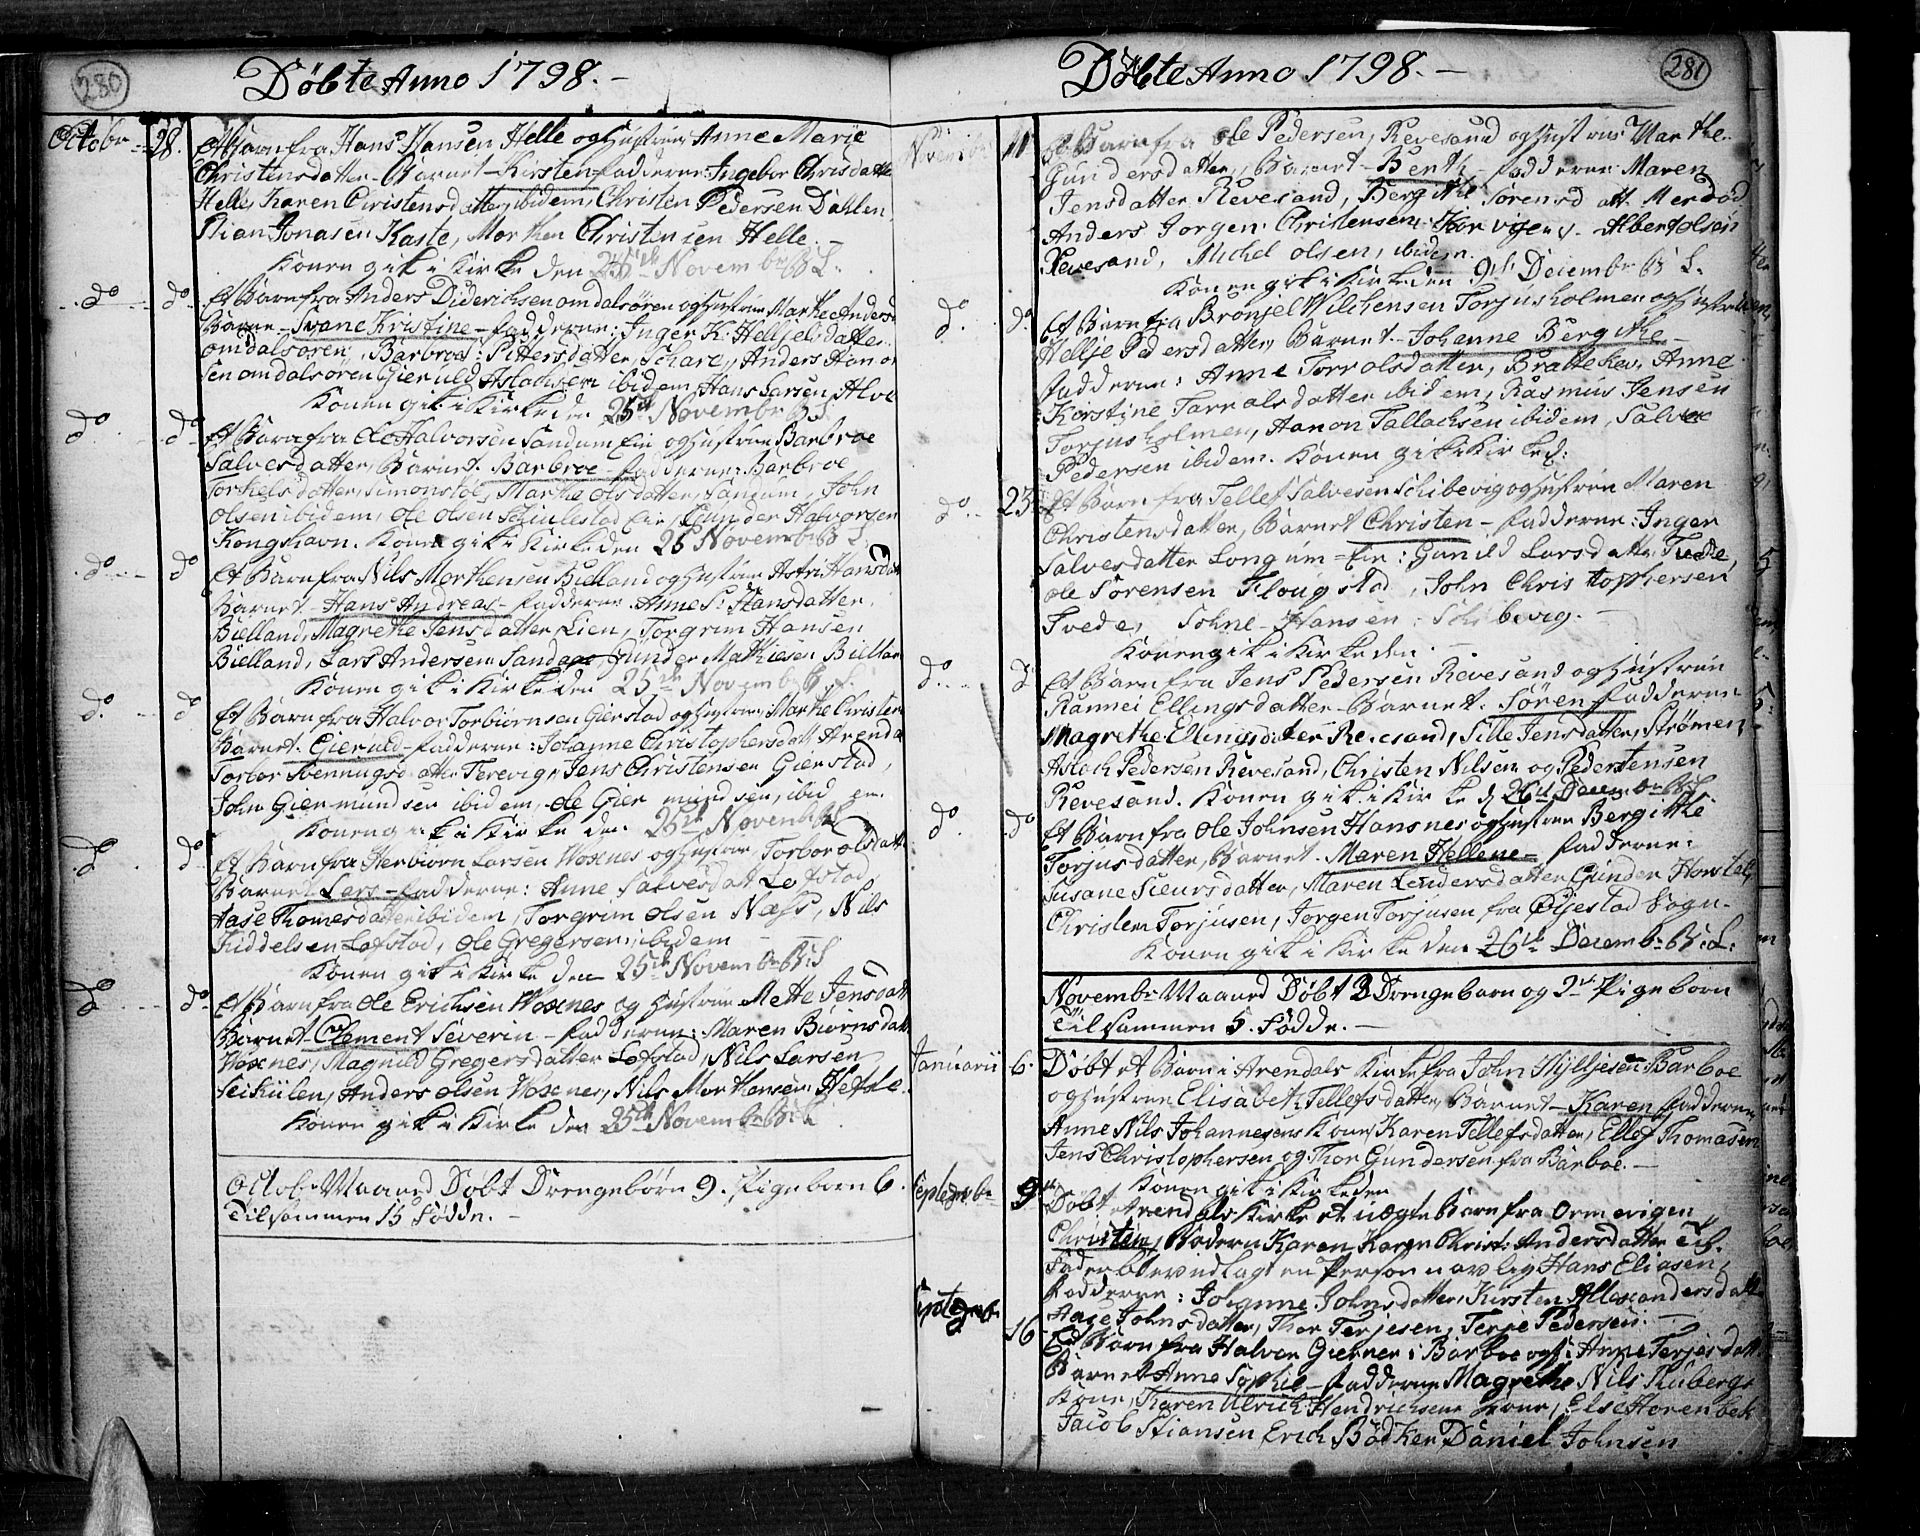 280
Döbte Anno 1798.
Octobr 28. Et Barn fra Hans Hansen Helle og Hustrue Anne Marie
Christensdatter Barnet Kirsten Fadderne: Ingebor Chrisdatte
Helle, Karen Christensdatter ibidem, Christen Pedersen Dahlen
Stian Jonasen Kaste, Morthen Christensen Helle.
Konen gik i Kirke den 25de Novembr
do do Et Barn fra Anders Diderichsen omdalsören og Hustrue Marthe Anders
Barne Svane Kristine Fadderne: Inger K: Helljelsdatter
omdalsören, Barbroe: Pittersdatter, Schare, Anders Hanon
sen omdalsören Gieruld Aslachsen ibidem, Hans Larsen, Alve
Konen gik i Kirke den 25de Novembr
do do Et Barn fra Ole Halvorsen Sandum Eie og Hustrue Barbroe
Salvesdatter, Barnet. Barbroe Fadderne: Barbroe
Torkelsdatter, Simonstöl, Marthe olsdatter, Sandum, John
olsen ibidem, ole olsen Eie, Gunder Halvorsen
Kongshavn. Konen gik i Kirke den 26 Novembr
do do Et Barn fra Nils Morthensen Bielland og Hustrue Astri Hansdat
Barnet Hans Andreas Fadderne Anne S: Hansdatter
Bielland, Magrethe Jensdatter Lien, Torgrim Hansen
Bielland, Lars Andersen Sandage, Gunder Mathiesen Biellan
Konen gik i Kirke den 25de Novembr
do do Et Barn fra Halvor Torbiörnsen Gierstad og Hustrue Marthe Christen
Barnet. Gieruld Fadderne: Johanne Christophersdatt Arenda
Torbor Svennugsdatter Terevig, Jens Christensen Gierstad,
John Giermundsen ibidem, ole Giermundsen, ibidem.
Konen gik i Kirke den 25de Novembr
do do Et Barn fra Herbiörn Larsen Woxnes og Hustrue Torbor olsdatt
Barnet Lars Fadderne: Anne Salvesdatt Lofstad,
Aase Thomesdatter ibidem, Torgrim olsen Næss, Nils
Kiddelsen Lofstad, ole Gregersen, ibidem
Konen gik i Kirke den 25de Novembr
do do Et Barn fra ole Erichsen Woxnes og Hustrue Mette Jensdatt
Barnet Clement Severin Fadderne: Maren Biörnsdatt
Woxnes, Magnild Gregersdatter Lofstad, Nils Larsen
Anders olsen Woxnes, Nils Morthensen Hefte
Konen gik i Kirke den 25de Novembr
Octobr Maaned Döbt Drengebörn 9. Pigebörn 6.
Tilsammen 15 Födde.
281
Döbte Anno 1798.
11 Et Barn fra Ole Pedersen, Revesand og Hustrue Marthe
Gundersdatter, Barnet Berth Fadderne: Maren
Jensdatter Revesand, Bergithe Sörensdatt. Merdöd
Anders Jorgen: Christensen, Albert olsen
Revesand, Michel olsen, ibidem.
Konen gik i Kirke den 9de Decembr
do. do. Et Barn fra Brönjel Wilchensen Torjusholmen og Hustruen
Hellje Pedersdatter, Barnet Johanne Bergithe
Fadderne: Anne Torrolsdatter, Brattekev, Anne
Kerstine Tarralsdatter ibidem, Rasmus Jensen
Torjusholmen, Hanon Tallachsen ibidem, Salve
Pedersen ibidem. Konen gik i Kirke d:
do. 23 Et Barn fra Tellef Salvesen Schibevig og Hustrue Maren
Christensdatter, Barnet Christen Fadderne: Inger
Salvesdatter Longum Eie: Gunild Larsdatter Tvede,
ole Sörensen Flougstad, John Christophersen
Tvede, Sohne Hansen Schibevig.
Konen gik i Kirke den
do. do Et Barn fra Jens Pedersen Revesand og Hustrue
Rannei Ellingsdatter Barnet. Sören Fadderne
Magrethe Ellingsdatter Revesand, Sille Jensdatter, Strömen,
Aslach Pedersen Revesand, Christen Nilsen og Peder Jensen
Revesand. Konen gik i Kirke d 26de Decembr
do. do Et Barn fra Ole Johnsen Hansnes og Hustrue Bergithe
Torjusdatter, Barnet. Maren Hellene Fadderne:
Susane Sieursdatter, Maren Lendersdatter Gunder
Christen Torjusen, Jorgen Torjusen fra Öyestad Sogn.
Konen gik i Kirke den 26de Decembr
Novembr Maaned Döbt 3 Drengebarn og 2de Pigeborn
Tilsammen 5. Födde.
Januarii 6. Döbt et Barn i Arendals Kirke fra John Kylljesen: Barboe
og Hustrue Elisabeth Tellefsdatter, Barnet Karen Fadderne
Anne Nils Johannesens Kone, Karen Tellefsdatter, Ellef Thomasen
Jens Christophersen og Thor Gundersen fra Barboe.
Konen gik i Kirke den
Septembr 9 Döbt i Arendals Kirke et uægte Barn fra
Christen, Moderen Karen Christ: Andersdatter Til
Fader blev udlagt en Person navnlig Hans Eliasen,
Fadderne: Johanne Johnsdatter, Kirsten Allexandersdatt
Aase Johnsdatter, Thor Terjesen, Terje Pedersen.
16 Et Barn fra Halvor Gierner i Barboe og H: Anne Terjesdatt
Barnet Anne Sophie Fadderne Magrethe Nils Thubergs
Kone, Karen Ulrich Hendrichsens Kone, Else Horenbek
Jacob Stiansen Erich Bödker Daniel Johnsen